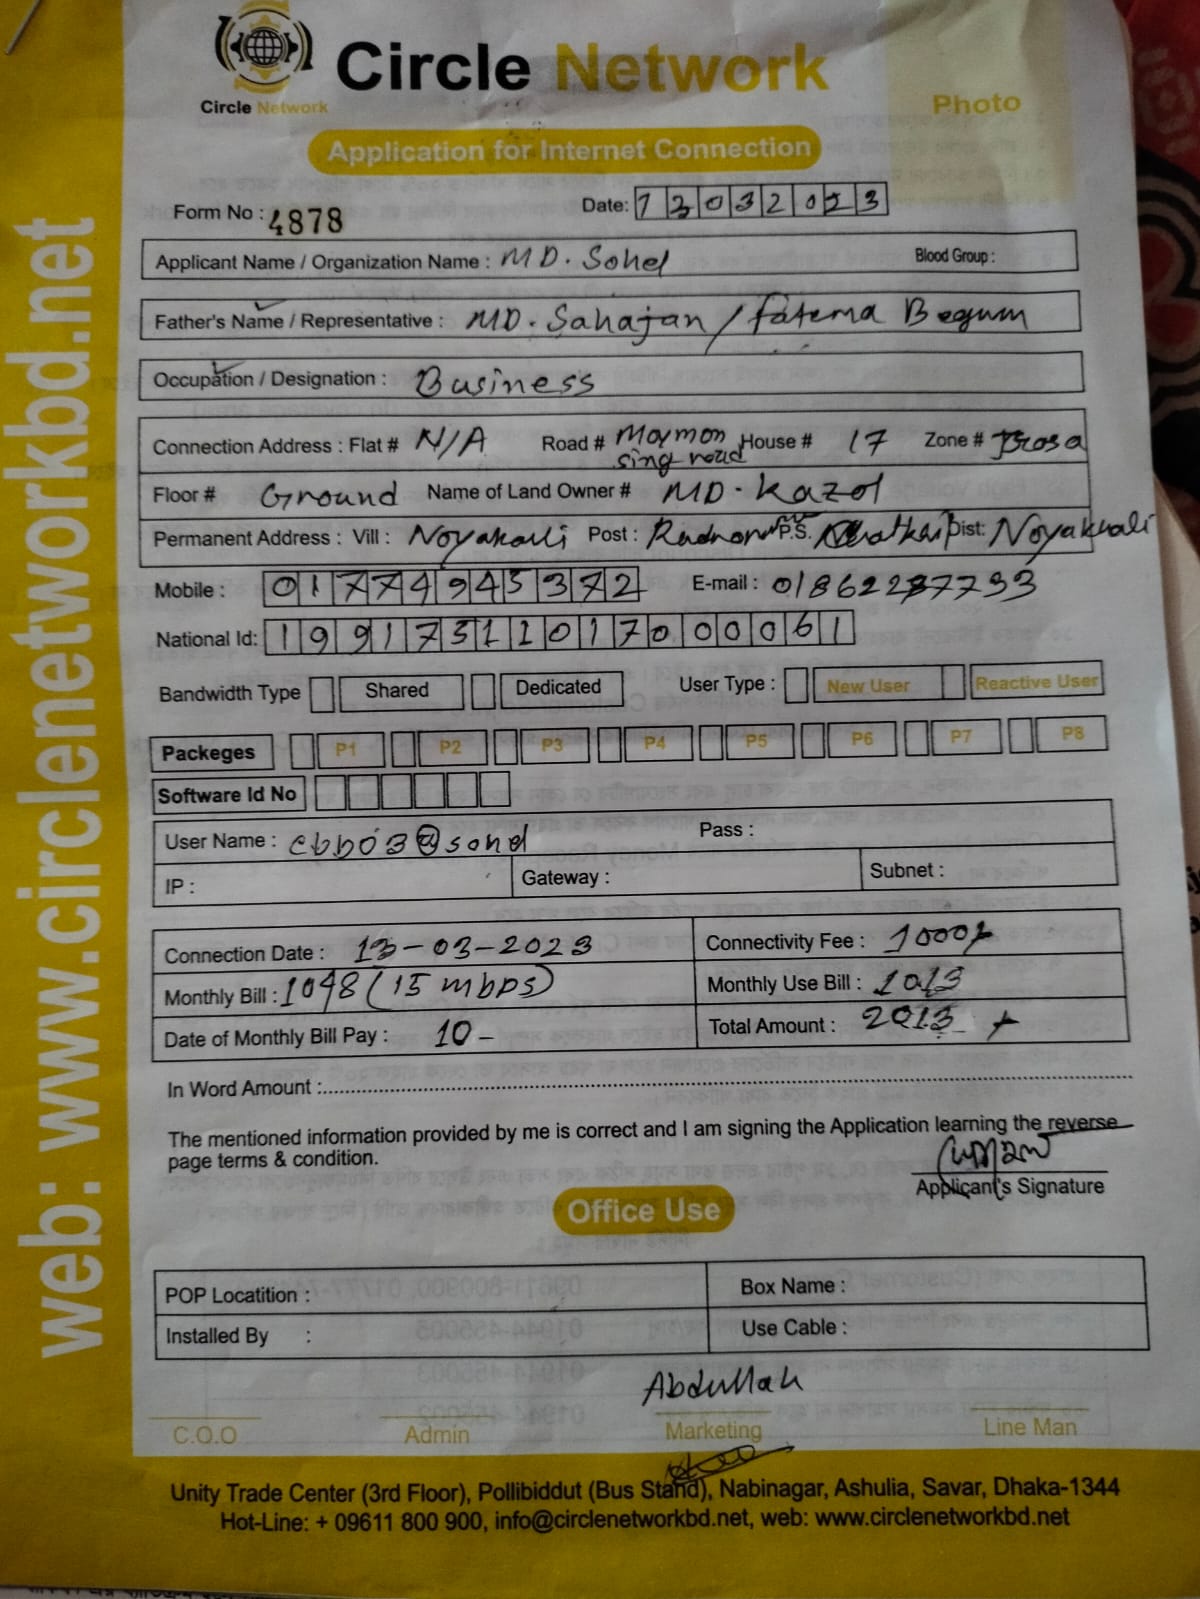 Circle Network
Circle Network
Photo
Application for Internet Connection
Form No : 4878
Date: 13032023
Applicant Name / Organization Name : MD. Sohel Blood Group :
Father's Name / Representative : MD. Sahajan / fatema Begum
Occupation / Designation : Business
Connection Address : Flat # N/A Road # Moymon sing road House # 17 Zone #
Floor # Ground Name of Land Owner # MD. Kazol
Permanent Address : Vill : Post : P.S. Dist: Noyakhali
Mobile : 01774945372 E-mail :
National Id: 19917511017000061
Bandwidth Type Shared Dedicated User Type : New User Reactive User
Packeges P1 P2 P3 P4 P5 P6 P7 P8
Software Id No
User Name : cbb03@sohel Pass :
IP : Gateway : Subnet :
Connection Date : 13-03-2023 Connectivity Fee : 1000/-
Monthly Bill : 1048 (15 mbps) Monthly Use Bill : 1013
Date of Monthly Bill Pay : 10- Total Amount : 2013
In Word Amount :
The mentioned information provided by me is correct and I am signing the Application learning the reverse
page terms & condition.
Applicant's Signature
Office Use
POP Locatition : Box Name :
Installed By : Use Cable :
Abdullah
C.O.O Admin Marketing Line Man
Unity Trade Center (3rd Floor), Pollibiddut (Bus Stand), Nabinagar, Ashulia, Savar, Dhaka-1344
Hot-Line: + 09611 800 900, info@circlenetworkbd.net, web: www.circlenetworkbd.net
web: www.circlenetworkbd.net